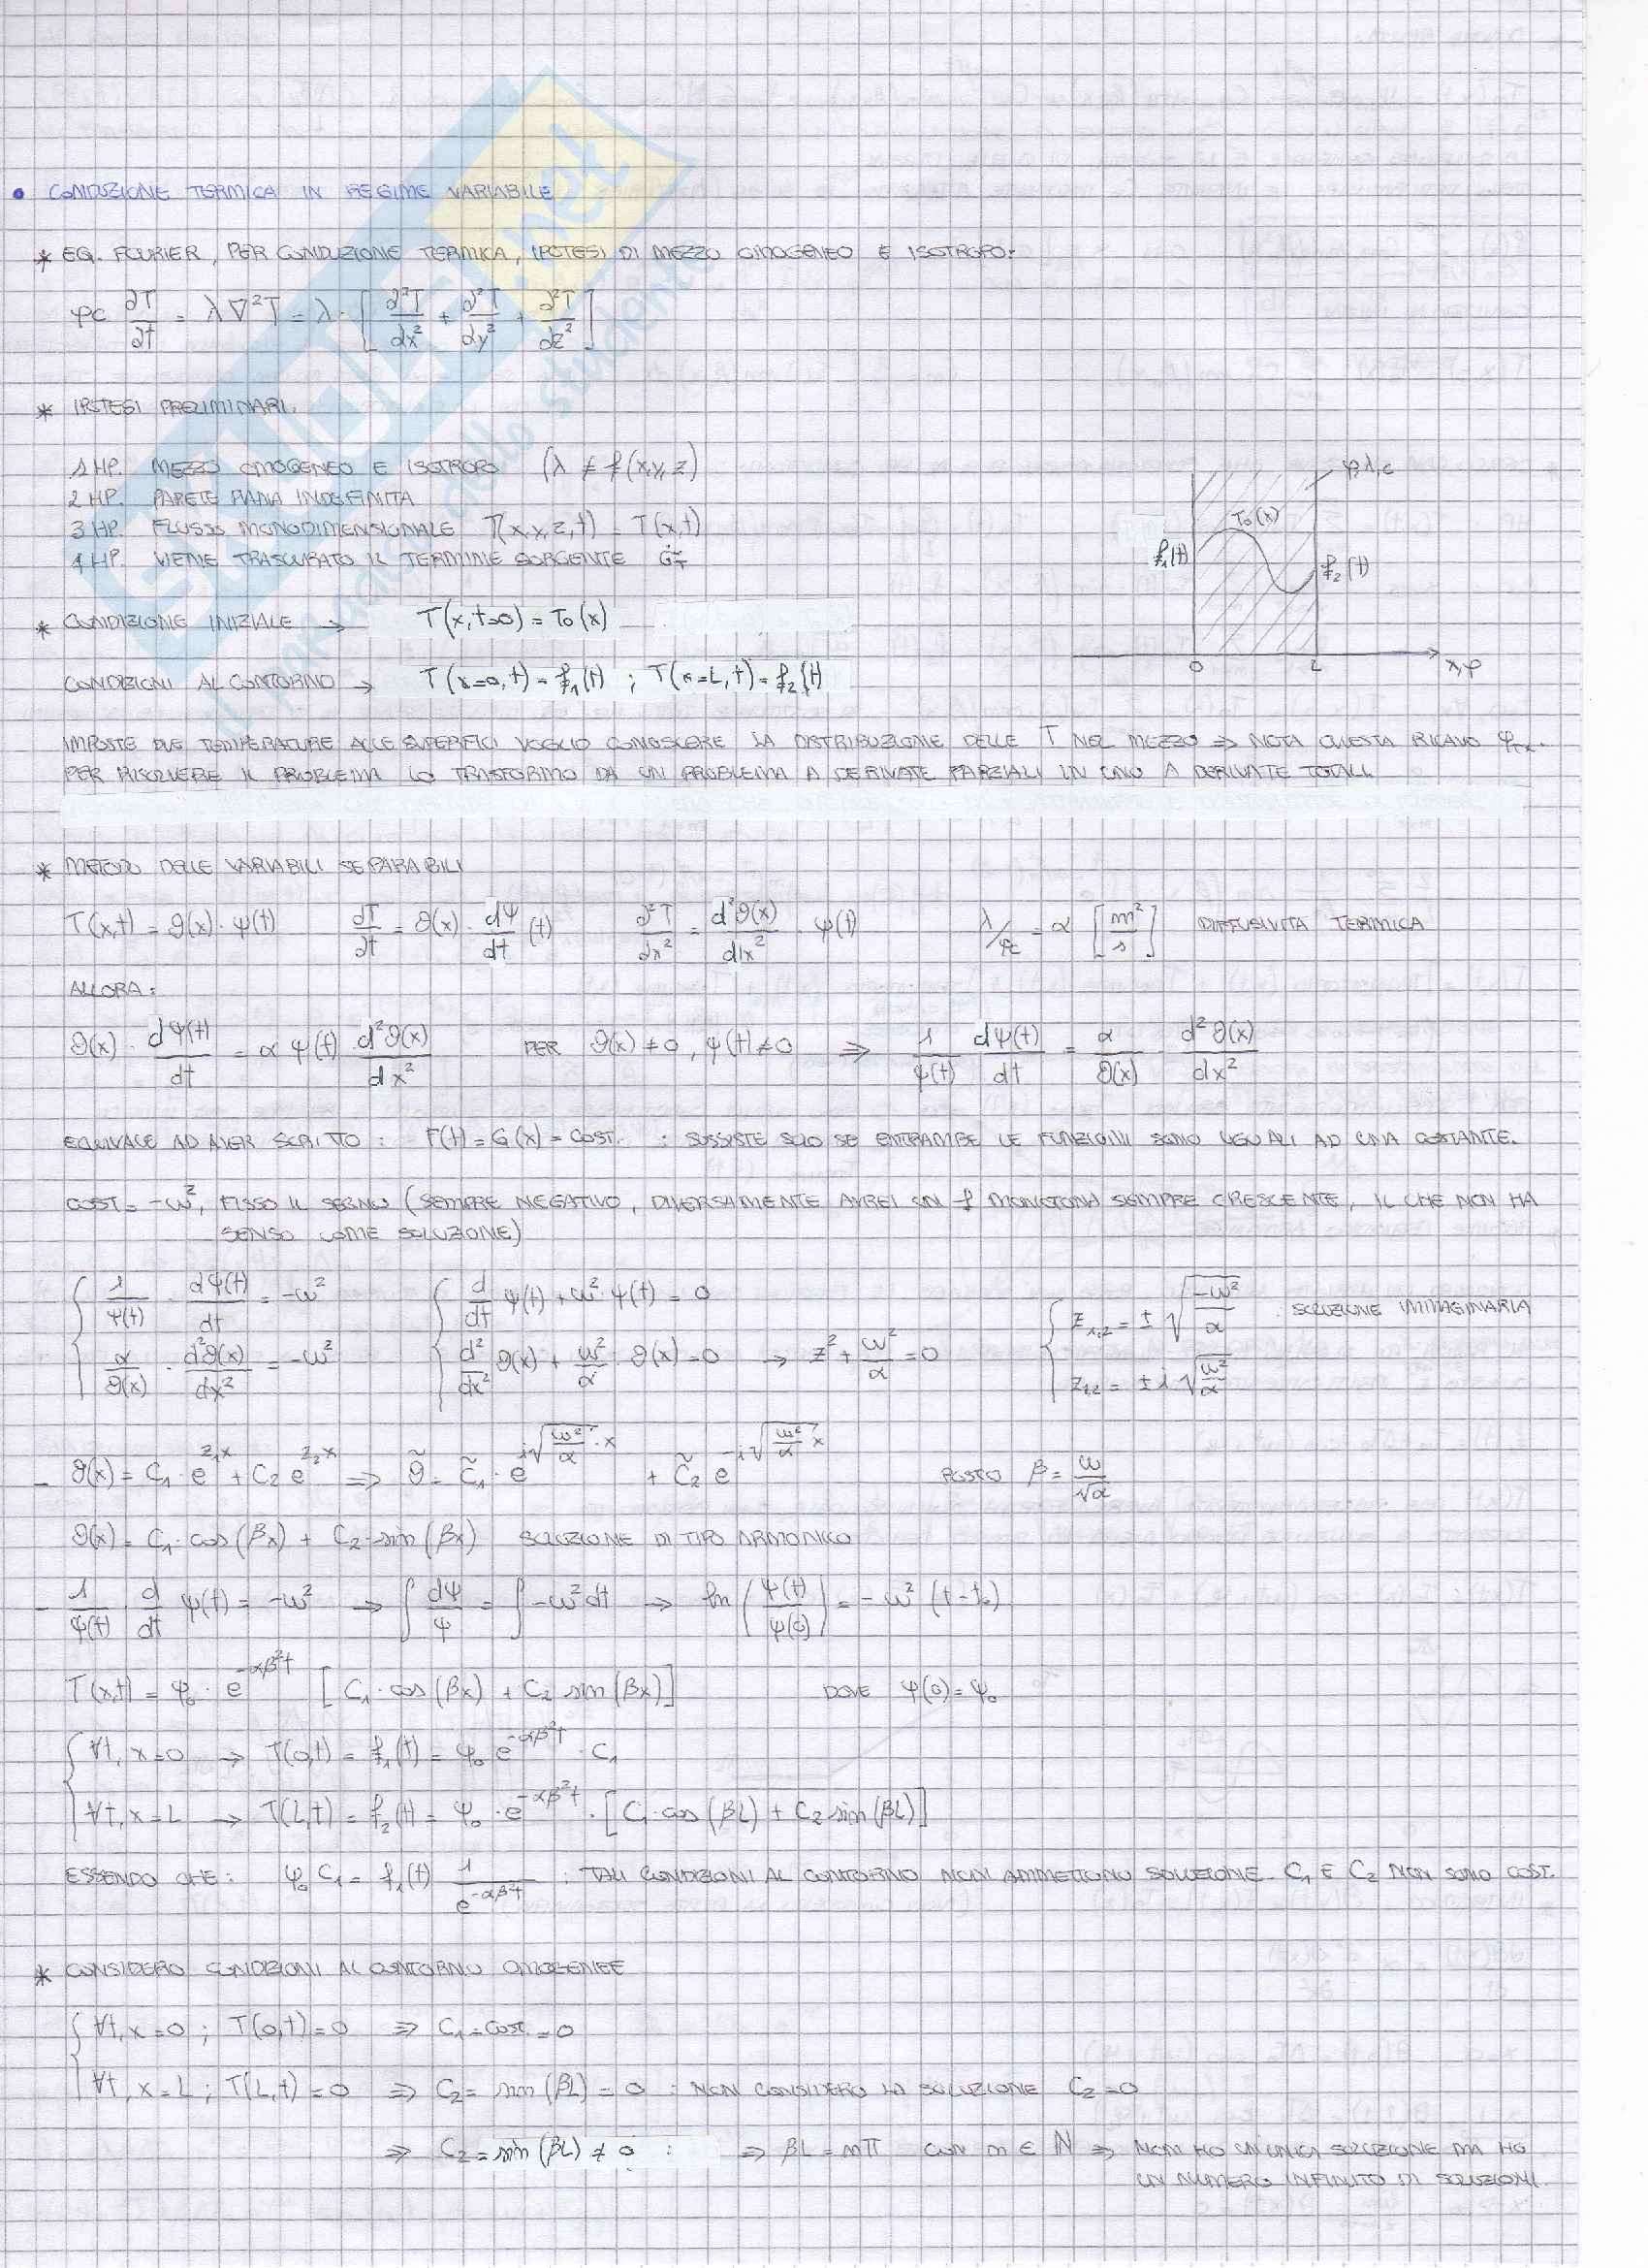 • CONDUZIONE TERMICA IN REGIME VARIABILE
* EQ. FOURIER, PER CONDUZIONE TERMICA, IPOTESI DI MEZZO OMOGENEO E ISOTROPO:
ρc ∂T/∂t = λ∇²T = λ·[∂²T/dx² + ∂²T/dy² + ∂²T/dz²]
* IPOTESI PRELIMINARI.
1 HP. MEZZO OMOGENEO E ISOTROPO (λ ≠ f(x,y,z)
2 HP. PARETE PIANA INDEFINITA
3 HP. FLUSSO MONODIMENSIONALE T(x,y,z,t) = T(x,t)
4 HP. VIENE TRASCURATO IL TERMINE SORGENTE
ρ,λ,c
T₀(x)
f₁(t)
f₂(t)
0 L x,φ
* CONDIZIONE INIZIALE → T(x,t=0) = T₀(x)
CONDIZIONI AL CONTORNO → T(x=0,t) = f₁(t) ; T(x=L,t) = f₂(t)
IMPOSTE DUE TEMPERATURE ALLE SUPERFICI VOGLIO CONOSCERE LA DISTRIBUZIONE DELLE T NEL MEZZO ⇒ NOTA QUESTA RICAVO
PER RISOLVERE IL PROBLEMA LO TRASFORMO DA UN PROBLEMA A DERIVATE PARZIALI IN UNO A DERIVATE TOTALI.
* METODO DELLE VARIABILI SEPARABILI
T(x,t) = ϑ(x)·ψ(t) ∂T/∂t = ϑ(x)·dψ/dt (t) ∂²T/dx² = d²ϑ(x)/dx² · ψ(t) λ/ρc = α [m²/s] DIFFUSIVITA TERMICA
ALLORA:
ϑ(x)· dψ(t)/dt = α ψ(t)·d²ϑ(x)/dx² PER ϑ(x)≠0, ψ(t)≠0 ⇒ 1/ψ(t) dψ(t)/dt = α/ϑ(x) d²ϑ(x)/dx²
EQUIVALE AD AVER SCRITTO : F(t) = G(x) = COST. : SUSSISTE SOLO SE ENTRAMBE LE FUNZIONI SONO UGUALI AD UNA COSTANTE.
COST = -ω², FISSO IL SEGNO (SEMPRE NEGATIVO, DIVERSAMENTE AVREI UN f MONOTONA SEMPRE CRESCENTE, IL CHE NON HA
SENSO COME SOLUZIONE)
{ 1/ψ(t) · dψ(t)/dt = -ω² { d/dt ψ(t) + ω²·ψ(t) = 0 { z₁,₂ = ± √(-ω²/α) . SOLUZIONE IMMAGINARIA
α/ϑ(x) · d²ϑ(x)/dx² = -ω² d²/dx² ϑ(x) + ω²/α · ϑ(x) = 0 → z² + ω²/α = 0 z₁,₂ = ± i √(ω²/α)
- ϑ(x) = C₁·e^(z₁x) + C₂ e^(z₂x) ⇒ ϑ̃ = C̃₁·e^(i√(ω²/α)·x) + C̃₂ e^(-i√(ω²/α) x) POSTO β = ω/√α
ϑ(x) = C₁·cos(βx) + C₂·sin(βx) SOLUZIONE DI TIPO ARMONICO
- 1/ψ(t) d/dt ψ(t) = -ω² → ∫ dψ/ψ = ∫ -ω² dt → ln(ψ(t)/ψ(0)) = -ω² (t-t₀)
T(x,t) = ψ₀ · e^(-αβ²t) [C₁·cos(βx) + C₂ sin(βx)] DOVE ψ(0) = ψ₀
{ ∀t, x=0 → T(0,t) = f₁(t) = ψ₀ e^(-αβ²t) · C₁
∀t, x=L → T(L,t) = f₂(t) = ψ₀ · e^(-αβ²t) · [C₁·cos(βL) + C₂ sin(βL)]
ESSENDO CHE : ψ₀ C₁ = f₁(t) 1/e^(-αβ²t) : TALI CONDIZIONI AL CONTORNO NON AMMETTONO SOLUZIONE. C₁ E C₂ NON SONO COST.
* CONSIDERO CONDIZIONI AL CONTORNO OMOGENEE
{ ∀t, x=0 ; T(0,t) = 0 ⇒ C₁ = COST. = 0
∀t, x=L ; T(L,t) = 0 ⇒ C₂ = sin(βL) = 0 : NON CONSIDERO LA SOLUZIONE C₂=0
⇒ C₂ = sin(βL) ≠ 0 : ⇒ βL = nπ CON n ∈ N ⇒ NON HO UN'UNICA SOLUZIONE MA HO
UN NUMERO INFINITO DI SOLUZIONI.